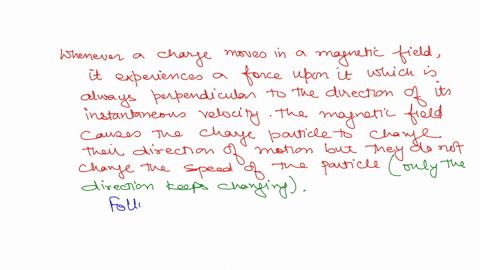 Whenever a charge moves in a magnetic field,
it experiences a force upon it which is
always perpendicular to the direction of its
instantaneous velocity. The magnetic field
causes the charge particle to change
their direction of motion but they do not
change the speed of the particle (only the
direction keeps changing).
Foll